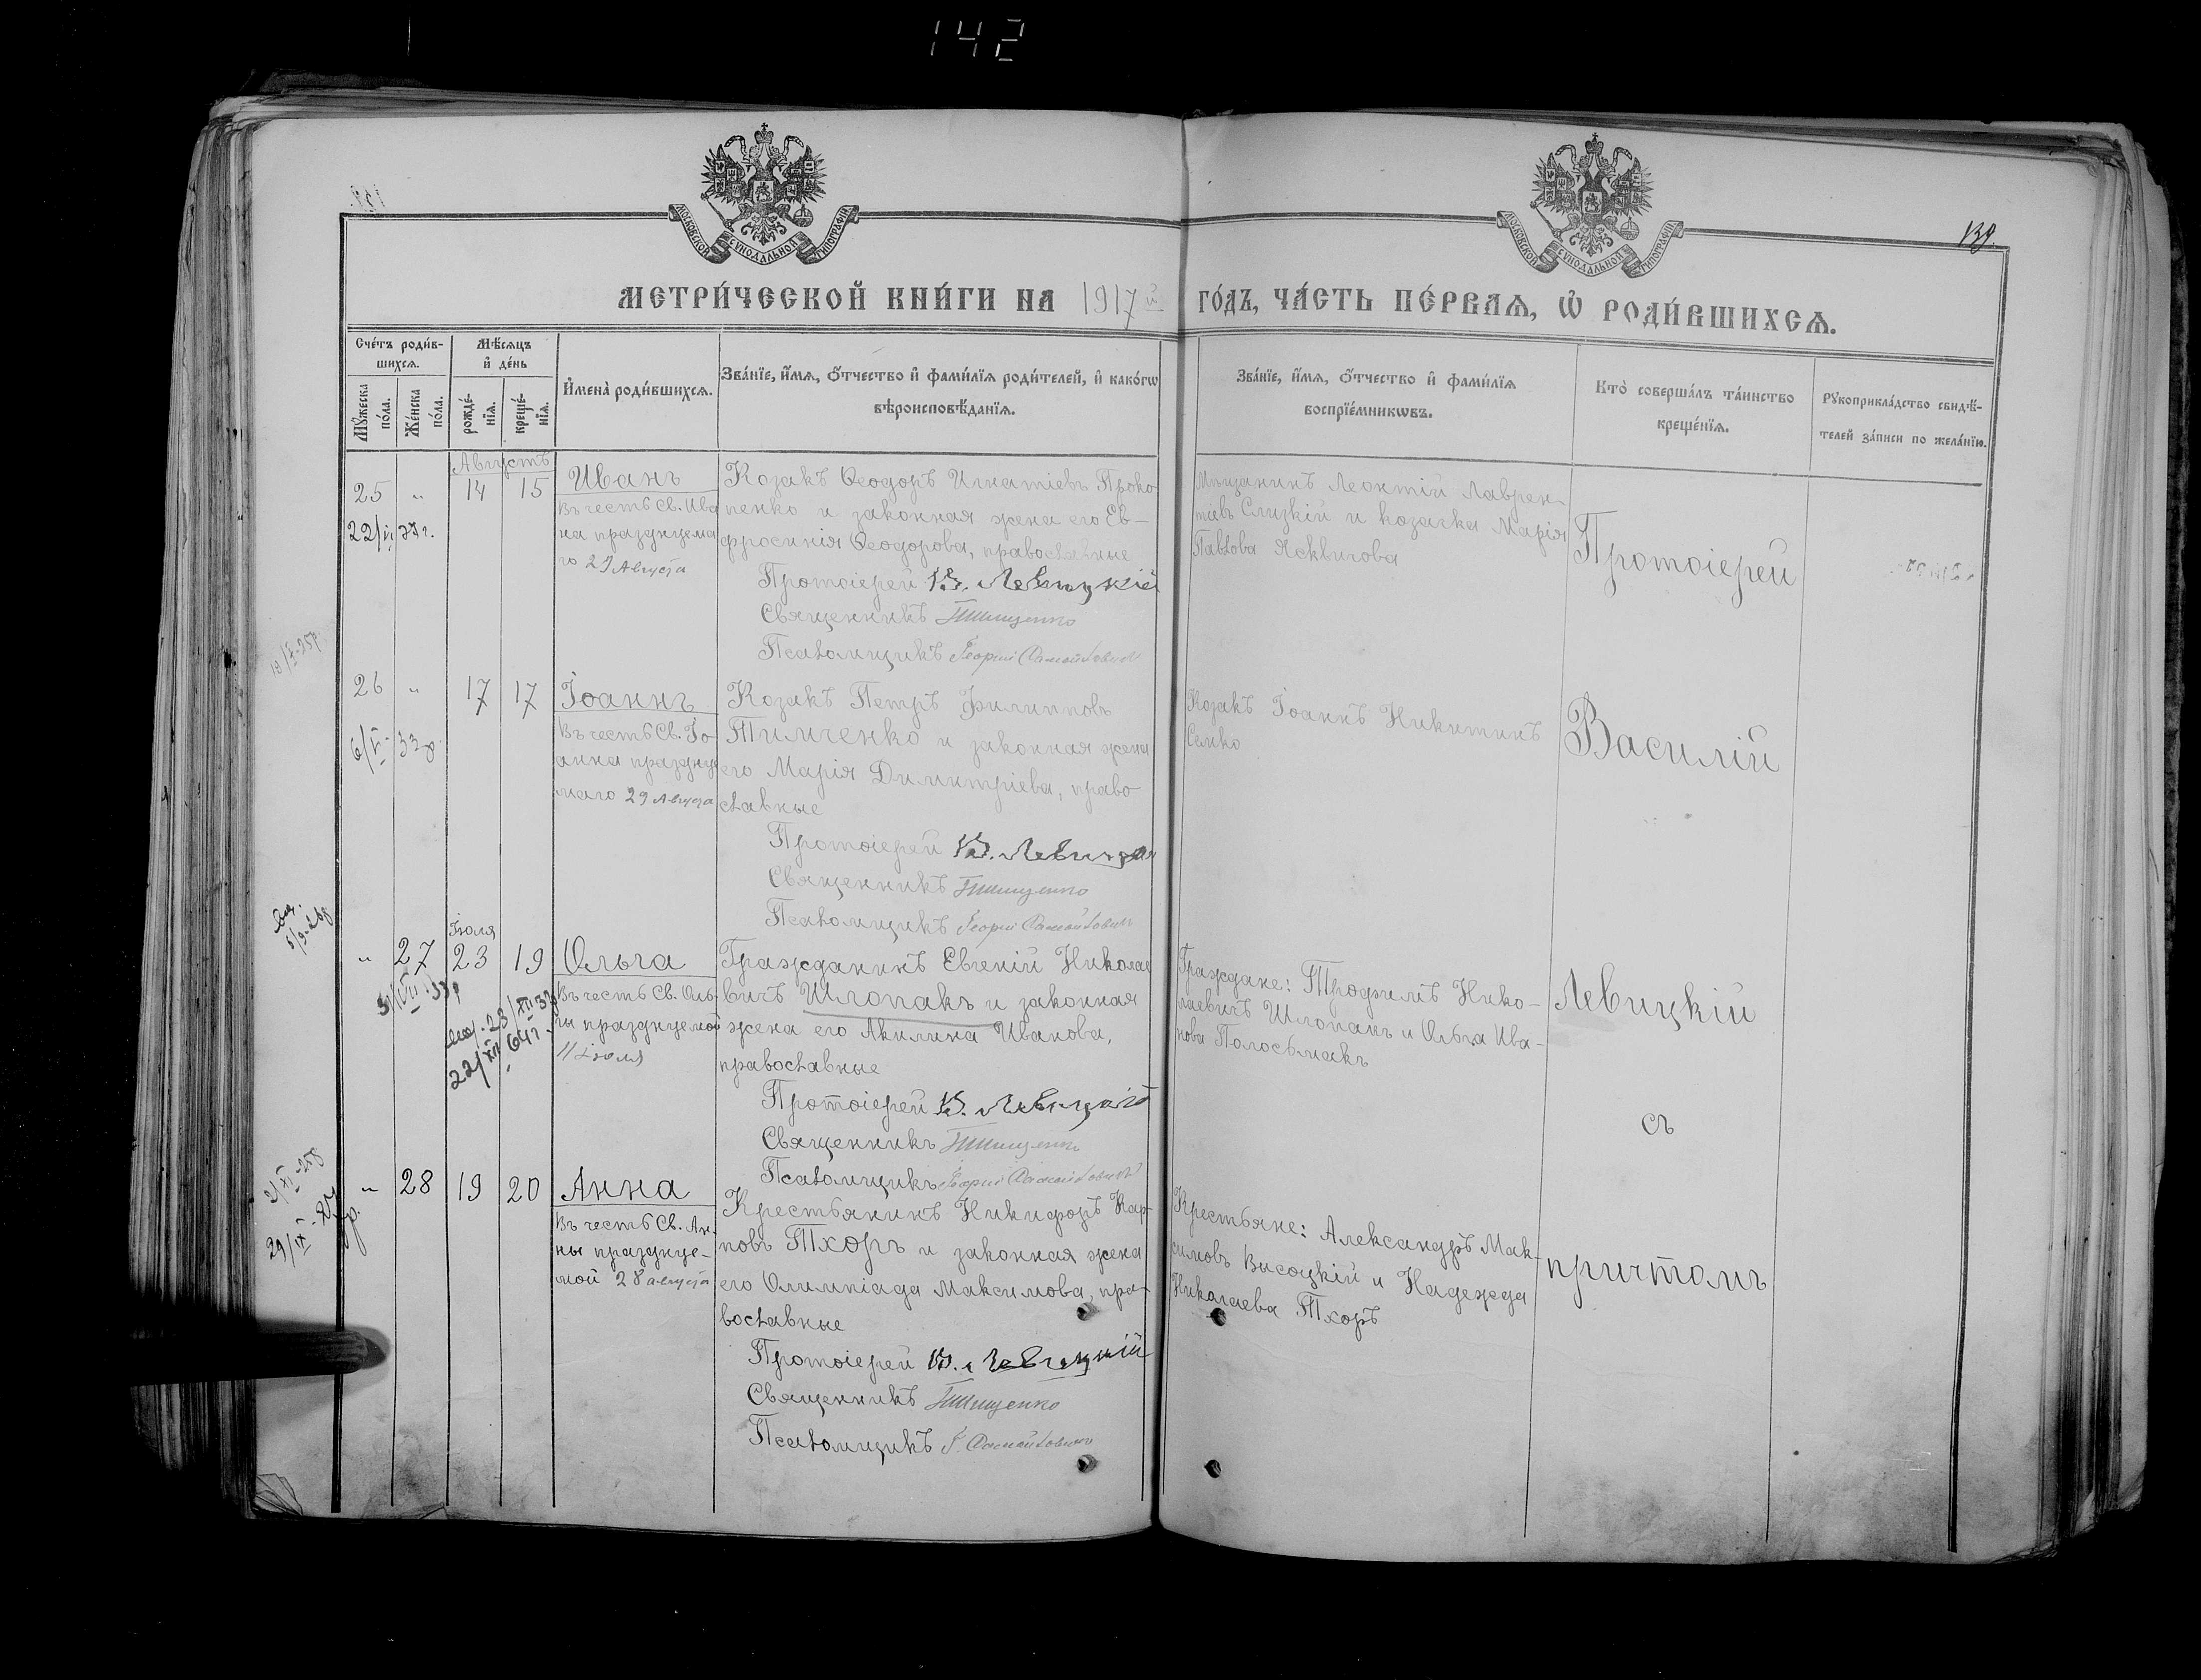 142
139.
МОСКОВСКОЙ СѴНОДАЛЬНОЙ ТИПОГРАФІИ
МОСКОВСКОЙ СѴНОДАЛЬНОЙ ТИПОГРАФІИ
МЕТРИ́ЧЕСКОЙ КНИ́ГИ НА 1917й ГО́ДЪ, ЧА́СТЬ ПЕ́РВАѦ, Ѡ҆ РОДИ́ВШИХСѦ.
Сче́тъ роди́в-
шихсѧ.
Мꙋ́жеска по́ла.
Же́нска по́ла.
Мѣ́сѧцъ
и҆ де́нь
рожде́-
нїѧ.
креще́-
нїѧ.
И҆мена̀ роди́вшихсѧ.
Зва́нїе, и҆́мѧ, ѻ҆́тчество и҆ фами́лїѧ роди́телей, и҆ како́гѡ
вѣроисповѣ́данїѧ.
Зва́нїе, и҆́мѧ, ѻ҆́тчество и҆ фами́лїѧ
воспрїе́мникѡвъ.
Кто̀ соверша́лъ та́инство
креще́нїѧ.
Рꙋкоприкла́дство свидѣ́-
телей за́писи по жела́нїю.
Августъ
25 „ 14 15 Иванъ
Въ честь Св. Ива
на празднуема
го 29 Августа
Козакъ Ѳеодоръ Игнатіевъ Проко
пенко и законная жена его Ев-
фросинія Ѳеодорова, православные
Протоіерей В. Левицкій
Священникъ Тищенко
Псаломщикъ Георгій
Мѣщанинъ Леонтій Лаврен-
тіевъ Слизкій и козачка Марія
Павлова
26 „ 17 17 Іоаннъ
Въ честь Св. Іо
анна праздну
маго 29 Августа
Козакъ Петръ Филипповъ
Тимченко и законная жена
его Марія Димитріева, право
славные
Протоіерей В. Левицкій
Священникъ Тищенко
Псаломщикъ Георгій
Козакъ Іоаннъ Никитинъ
Семко
Іюля
„ 27 23 19 Ольга
Въ честь Св. Оль-
ги празднуемой
11 Іюля
Гражданинъ Евгеній Николае
вичъ Шлопакъ и законная
жена его Акилина Иванова,
православные
Протоіерей В. Левицкій
Священникъ Тищенко
Псаломщикъ Георгій
Граждане: Трофимъ Нико-
лаевичъ Шлопакъ и Ольга Ива-
нова Полосьмакъ
„ 28 19 20 Анна
Въ честь Св. Ан
ны празднуе-
мой 28 августа
Крестьянинъ Никифоръ Кар-
повъ Тхоръ и законная жена
его Олимпіада Максимова, пра-
вославные
Протоіерей В. Левицкій
Священникъ Тищенко
Псаломщикъ Г.
Крестьяне: Александръ Мак-
симовъ Высоцкій и Надежда
Николаева Тхоръ
Протоіерей
Василій
Левицкій
съ
причтомъ